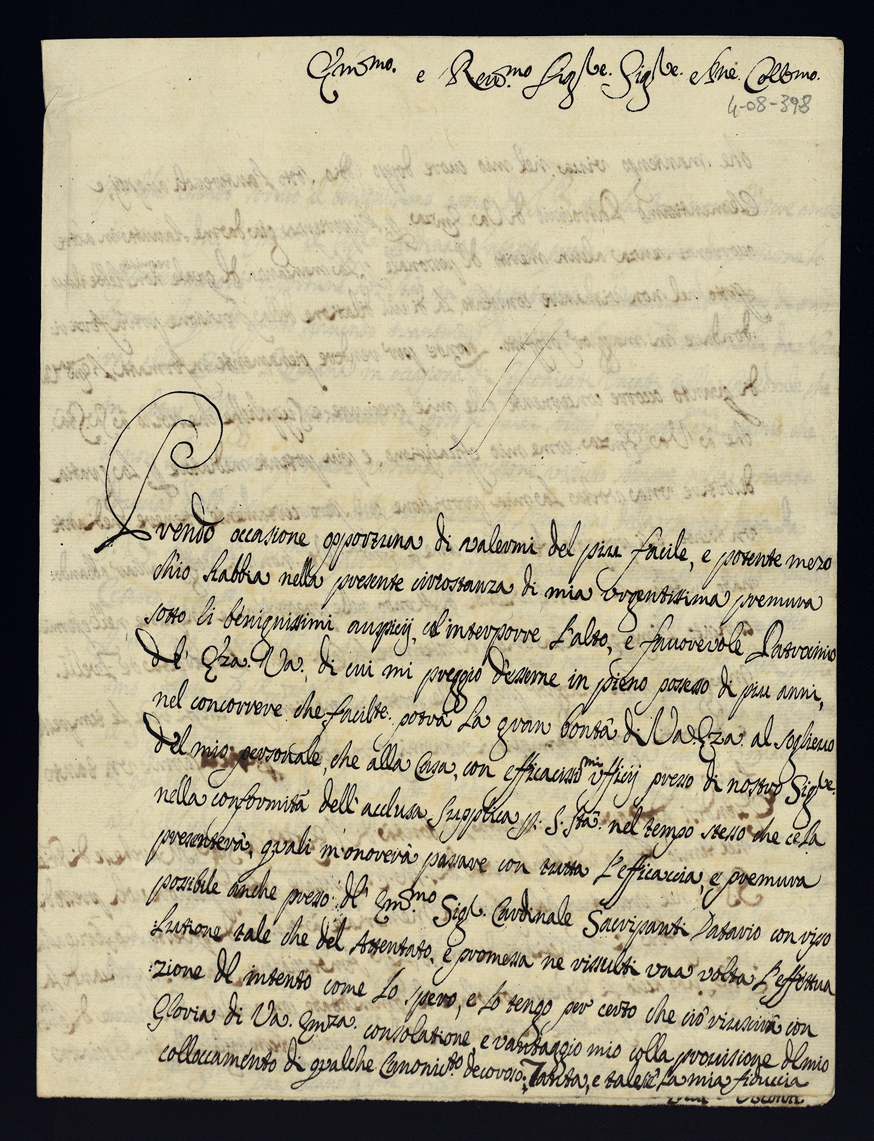 Em̃mo. e Reu.mo Sig.re Sig.re e Pne. Coll.mo
4-08-398
Avendo occasione opportuna di valermi del piu facile, e potente mezo
ch'io habbia nella presente circostanza di mia urgentissima premura
sotto li benignissimi auspicij, ed interporre l'alto, e favorevole Patrocinio
dell' Eza. Va., di cui mi preggio d'esserne in pieno possesso di piu anni,
nel concorrere che facilte. potrà la gran bontà di Va. Eza. al soglievo
del mio personale, che alla Casa, con efficacissmi ufficij presso di nostro Sigre.
nella conformità dell'acclusa supplica p. S. Sta. nel tempo stesso che ce la
presenterà, quali m'onorerà passare con tutta l'efficaccia, e premura
possibile anche presso dell' Em.mo Sigr. Cardinale Sacripanti Datario con riso
:lutione tale che del Attentato, e promessa ne risculti una volta l'effettua
:zione del intento come lo spero, e lo tengo per certo che ciò riuscirà con
Gloria di Va. Emza. consolatione, e vantaggio mio colla provisione del mio
collocamento di qualche Canonicto. decoroso; tanta, e tale è la mia fiducia